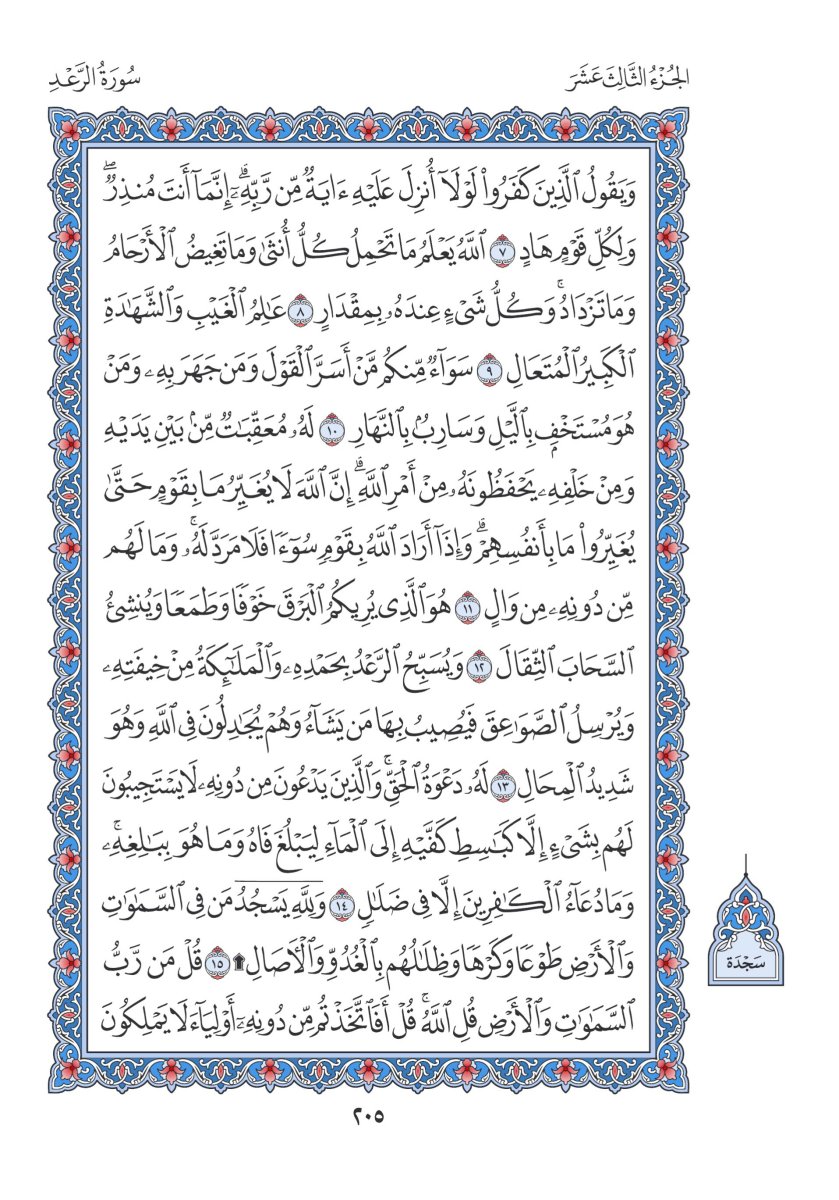 الجُزْءُ الثَّالِثَ عَشَرَ
سُورَةُ الرَّعْدِ
وَيَقُولُ ٱلَّذِينَ كَفَرُواْ لَوۡلَآ أُنزِلَ عَلَيۡهِ ءَايَةٞ مِّن رَّبِّهِۦٓۗ إِنَّمَآ أَنتَ مُنذِرٞۖ
وَلِكُلِّ قَوۡمٍ هَادٍ ٧ ٱللَّهُ يَعۡلَمُ مَا تَحۡمِلُ كُلُّ أُنثَىٰ وَمَا تَغِيضُ ٱلۡأَرۡحَامُ
وَمَا تَزۡدَادُۚ وَكُلُّ شَيۡءٍ عِندَهُۥ بِمِقۡدَارٍ ٨ عَٰلِمُ ٱلۡغَيۡبِ وَٱلشَّهَٰدَةِ
ٱلۡكَبِيرُ ٱلۡمُتَعَالِ ٩ سَوَآءٞ مِّنكُم مَّنۡ أَسَرَّ ٱلۡقَوۡلَ وَمَن جَهَرَ بِهِۦ وَمَنۡ
هُوَ مُسۡتَخۡفِۭ بِٱلَّيۡلِ وَسَارِبُۢ بِٱلنَّهَارِ ١٠ لَهُۥ مُعَقِّبَٰتٞ مِّنۢ بَيۡنِ يَدَيۡهِ
وَمِنۡ خَلۡفِهِۦ يَحۡفَظُونَهُۥ مِنۡ أَمۡرِ ٱللَّهِۗ إِنَّ ٱللَّهَ لَا يُغَيِّرُ مَا بِقَوۡمٍ حَتَّىٰ
يُغَيِّرُواْ مَا بِأَنفُسِهِمۡۗ وَإِذَآ أَرَادَ ٱللَّهُ بِقَوۡمٖ سُوٓءٗا فَلَا مَرَدَّ لَهُۥۚ وَمَا لَهُم
مِّن دُونِهِۦ مِن وَالٍ ١١ هُوَ ٱلَّذِي يُرِيكُمُ ٱلۡبَرۡقَ خَوۡفٗا وَطَمَعٗا وَيُنشِئُ
ٱلسَّحَابَ ٱلثِّقَالَ ١٢ وَيُسَبِّحُ ٱلرَّعۡدُ بِحَمۡدِهِۦ وَٱلۡمَلَٰٓئِكَةُ مِنۡ خِيفَتِهِۦ
وَيُرۡسِلُ ٱلصَّوَٰعِقَ فَيُصِيبُ بِهَا مَن يَشَآءُ وَهُمۡ يُجَٰدِلُونَ فِي ٱللَّهِ وَهُوَ
شَدِيدُ ٱلۡمِحَالِ ١٣ لَهُۥ دَعۡوَةُ ٱلۡحَقِّۚ وَٱلَّذِينَ يَدۡعُونَ مِن دُونِهِۦ لَا يَسۡتَجِيبُونَ
لَهُم بِشَيۡءٍ إِلَّا كَبَٰسِطِ كَفَّيۡهِ إِلَى ٱلۡمَآءِ لِيَبۡلُغَ فَاهُ وَمَا هُوَ بِبَٰلِغِهِۦۚ
وَمَا دُعَآءُ ٱلۡكَٰفِرِينَ إِلَّا فِي ضَلَٰلٖ ١٤ وَلِلَّهِۤ يَسۡجُدُۤ مَن فِي ٱلسَّمَٰوَٰتِ
وَٱلۡأَرۡضِ طَوۡعٗا وَكَرۡهٗا وَظِلَٰلُهُم بِٱلۡغُدُوِّ وَٱلۡأٓصَالِ ۩ ١٥ قُلۡ مَن رَّبُّ
ٱلسَّمَٰوَٰتِ وَٱلۡأَرۡضِ قُلِ ٱللَّهُۚ قُلۡ أَفَٱتَّخَذۡتُم مِّن دُونِهِۦٓ أَوۡلِيَآءَ لَا يَمۡلِكُونَ
سَجْدَة
٢٠٥